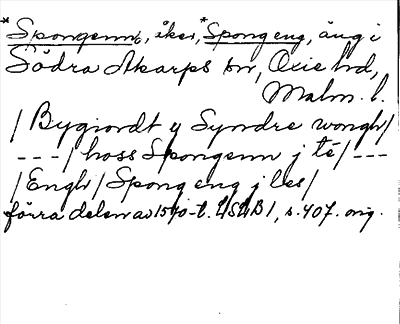 *Spongenn, åker, *Spong eng, äng i
Södra Åkarps sn, Oxie hd,
Malm. l.
/ Bygiordt y Syndre wongh /
--- / hoss Spongenn j té / ---
/ Engh / Spong eng j les /
förra delen av 1570-t. LSLB 1, s. 407. orig.